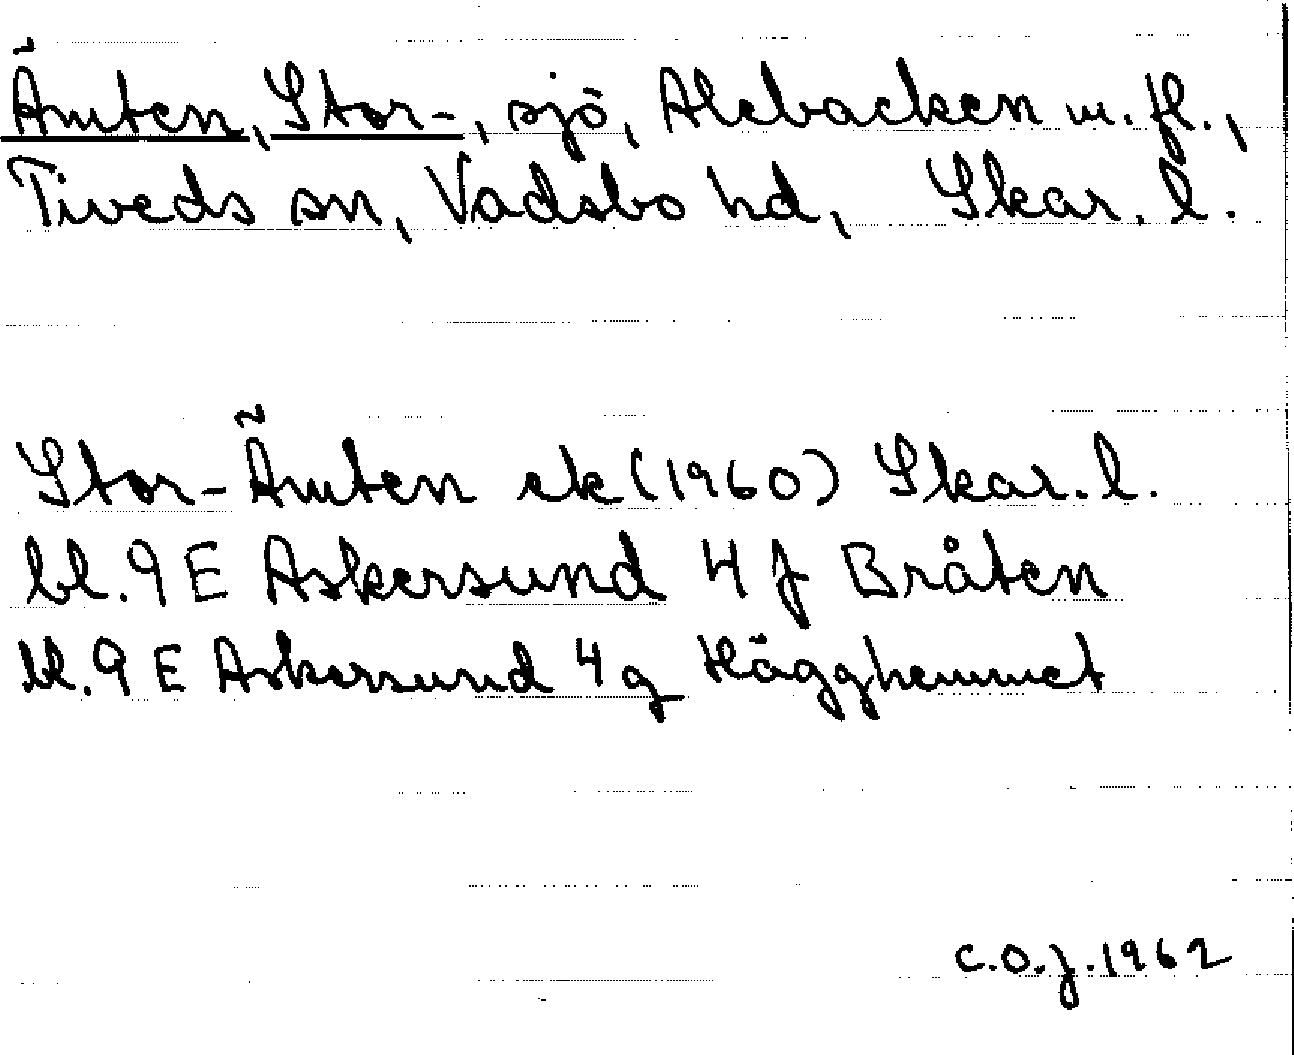 Ämten, Stor-, sjö, Alebacken m. fl.,
Tiveds sn, Vadsbo hd, Skar. l.
Stor-Ämten ek (1960) Skar. l.
bl. 9 E Askersund 4 f Bråten
bl. 9 E Askersund 4 g Hägghemmet
C.O.J. 1962